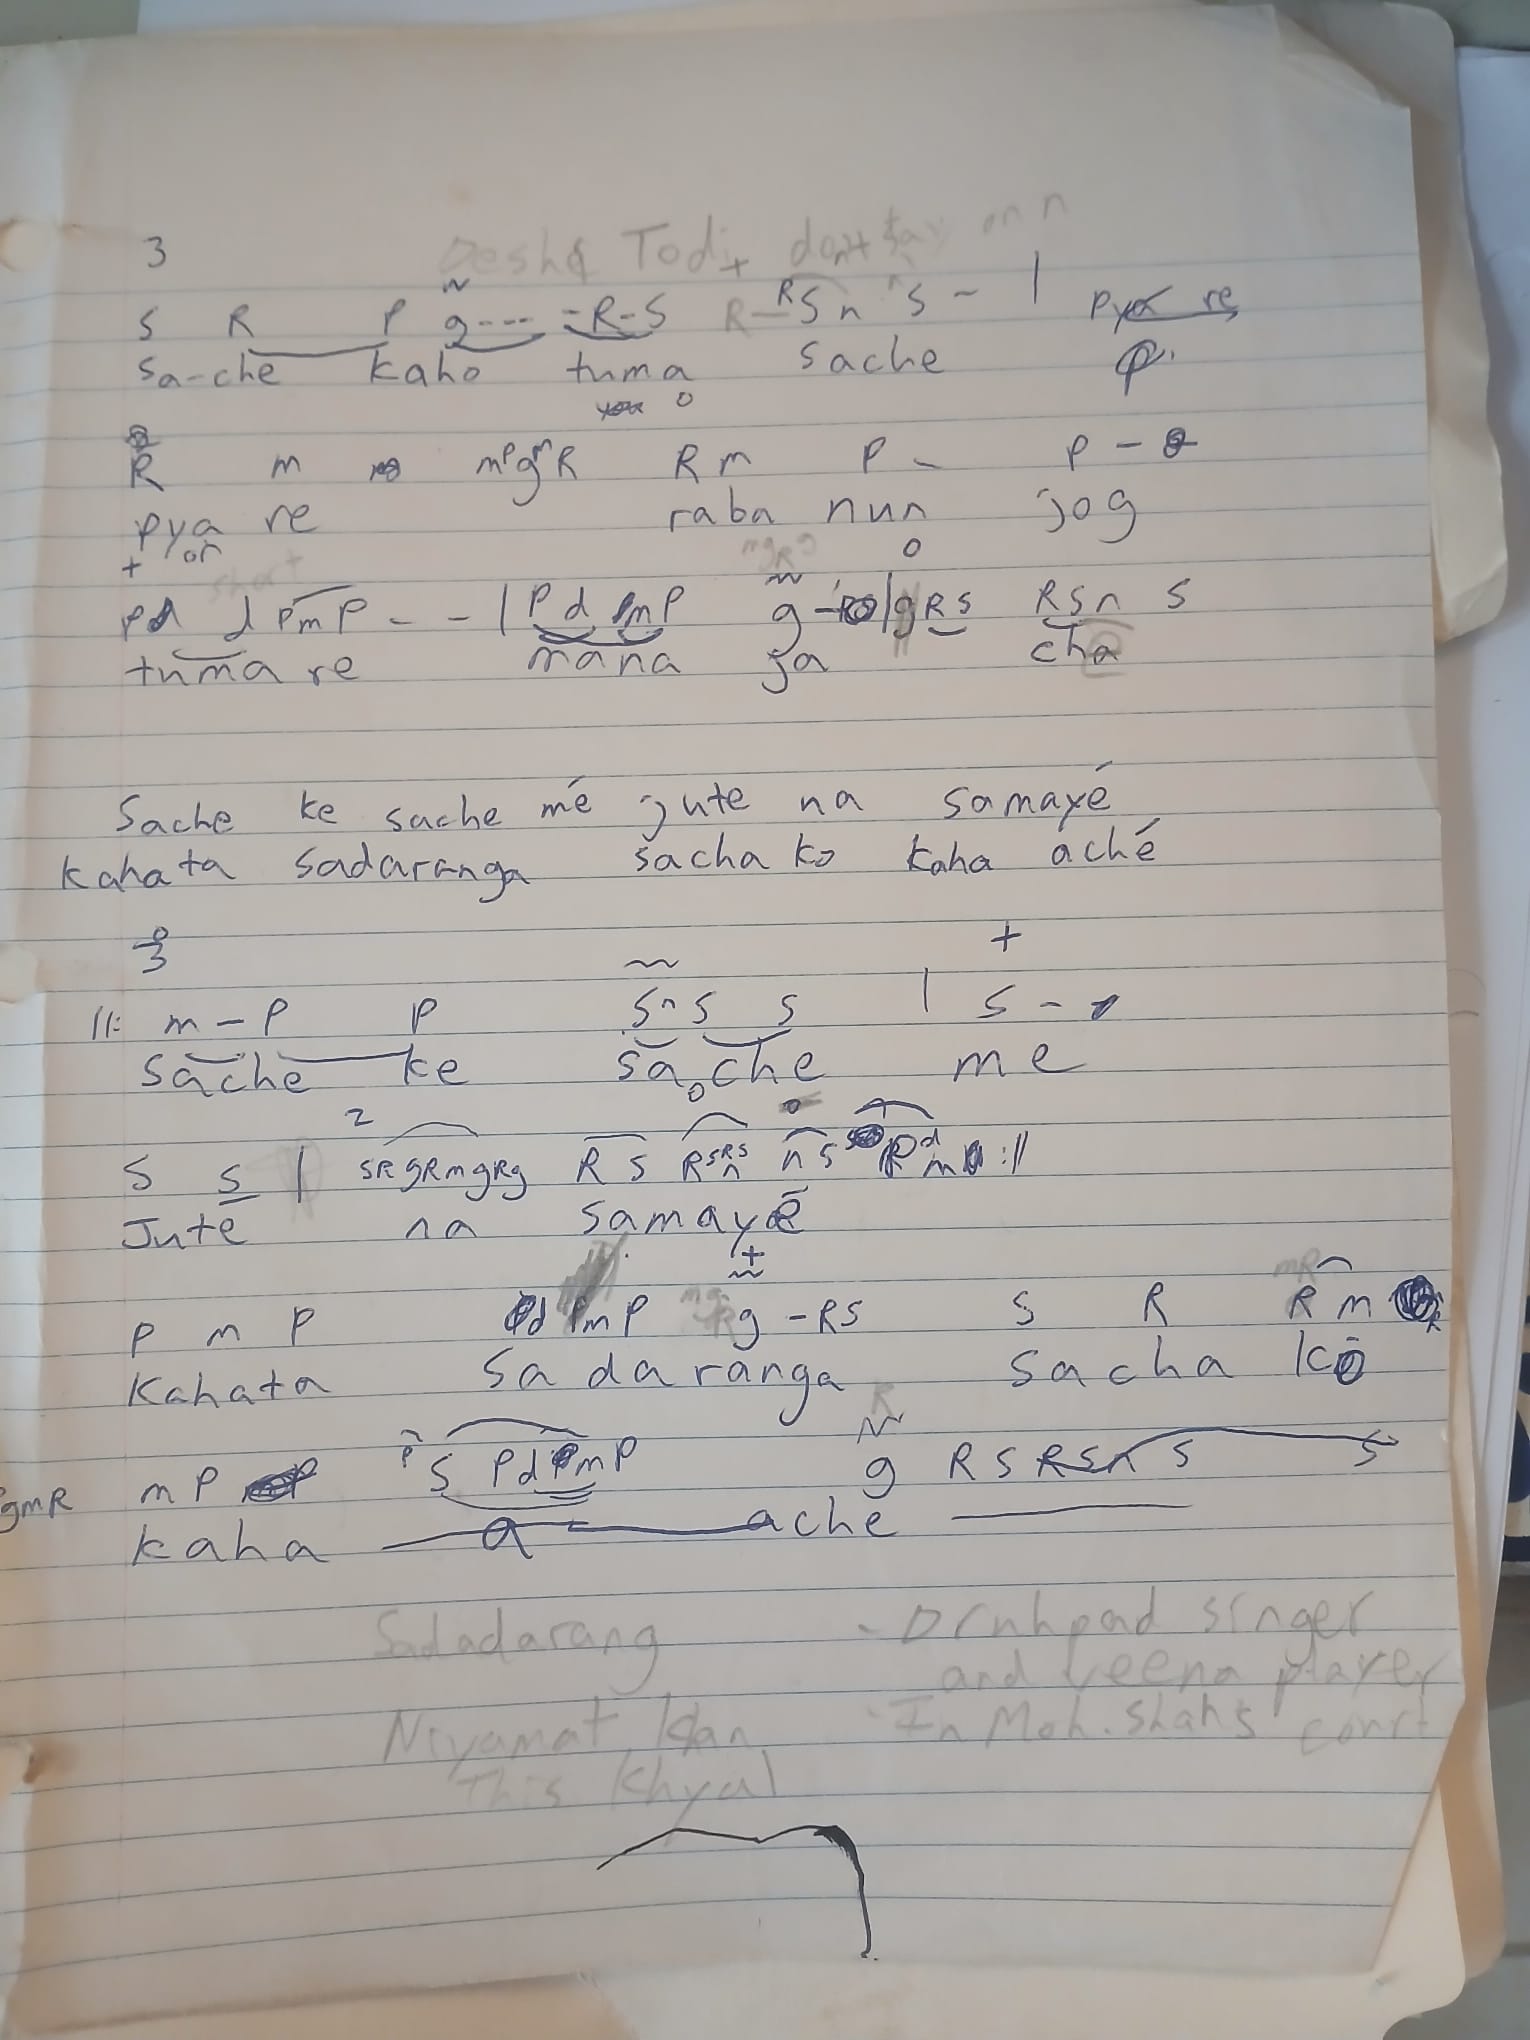 3
Desh Todi don't stay on n
S R P g--- -R-S R- RS n S - | pya re
Sa-che kaho tuma sache
R m mPgmR R m P - P -
pya re raba nun jog
+ on short mgRg o
Pd d PmP - - | Pd mP g - | gRS RSn S
tuma re mana ja cha
Sache ke sache mé jute na samayé
kahata sadaranga sacha ko kaha aché
3 +
||: m-P P SnS S | S -
Sache ke sache me
2
S S | SRgRmgRg R S RSRSn n S R m :||
Jute na samayē
+
P m P PmP g -RS S R R m
Kahata Sa da ranga sacha ko
gmR mP S Pd mP g RS RSn S S
kaha a ache
Sadadarang - Druhpad singer
and veena player
Niyamat Khan - In Moh. Shah's court
This Khyal